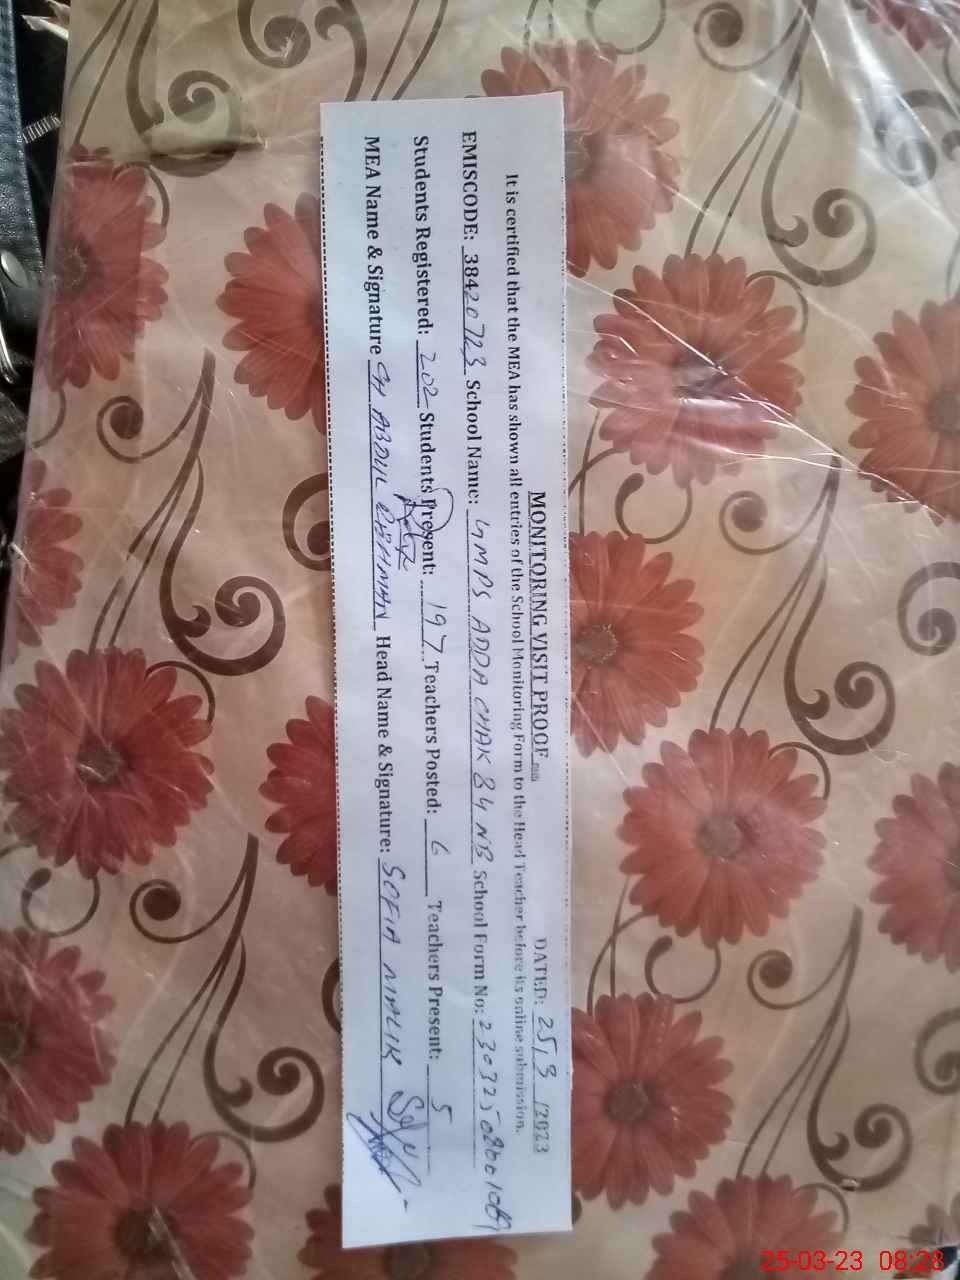 MONITORING VISIT PROOF
DATED: 25/3/2023
It is certified that the MEA has shown all entries of the School Monitoring Form to the Head Teacher before its online submission.
EMISCODE: 38420723 School Name: GMPS ADDA CHAK 84 NB School Form No:
Students Registered: 202 Students Present: 197 Teachers Posted: 6 Teachers Present: 5
MEA Name & Signature CH ABDUL REHMAN Head Name & Signature: SOFIA MALIK
25-03-23 08:28